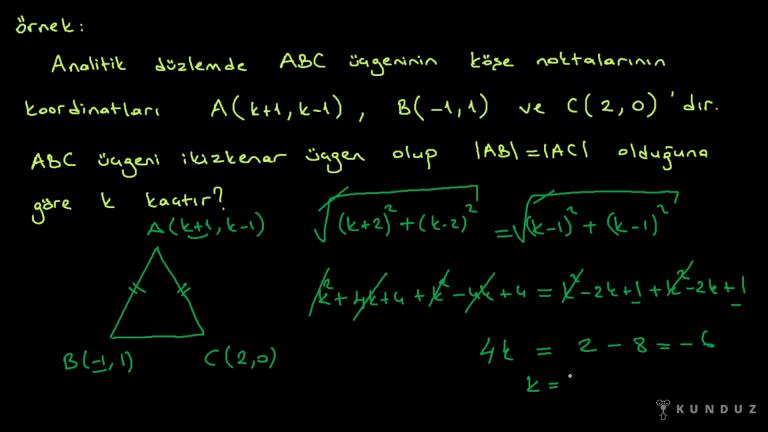 örnek:
Analitik düzlemde ABC üçgeninin köşe noktalarının
koordinatları A(k+1, k-1), B(-1,1) ve C(2,0)'dır.
ABC üçgeni ikizkenar üçgen olup |AB|=|AC| olduğuna
göre k kaçtır?
A(k+1, k-1)
√(k+2)² + (k-2)² = √(k-1)² + (k-1)²
k² + 4k + 4 + k² - 4k + 4 = k² - 2k + 1 + k² - 2k + 1
4k = 2 - 8 = -6
B(-1, 1)
C(2,0)
k =
KUNDUZ